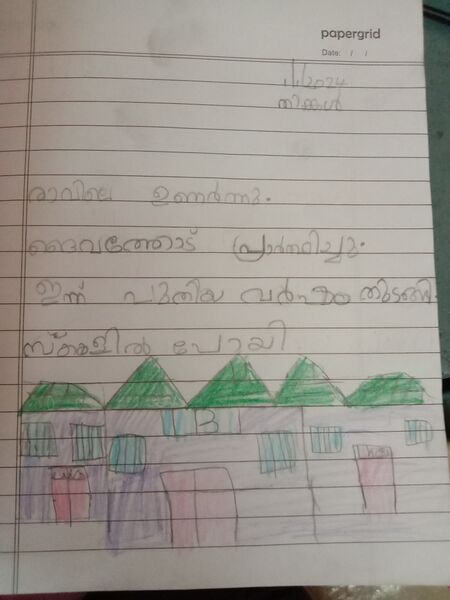 papergrid
Date: / /
1/1/2024
തിങ്കൾ
രാവിലെ ഉണർന്നു.
ദൈവത്തോട് പ്രാർത്ഥിച്ചു.
ഇന്ന് പുതിയ വർഷം തുടങ്ങി.
സ്കൂളിൽ പോയി.